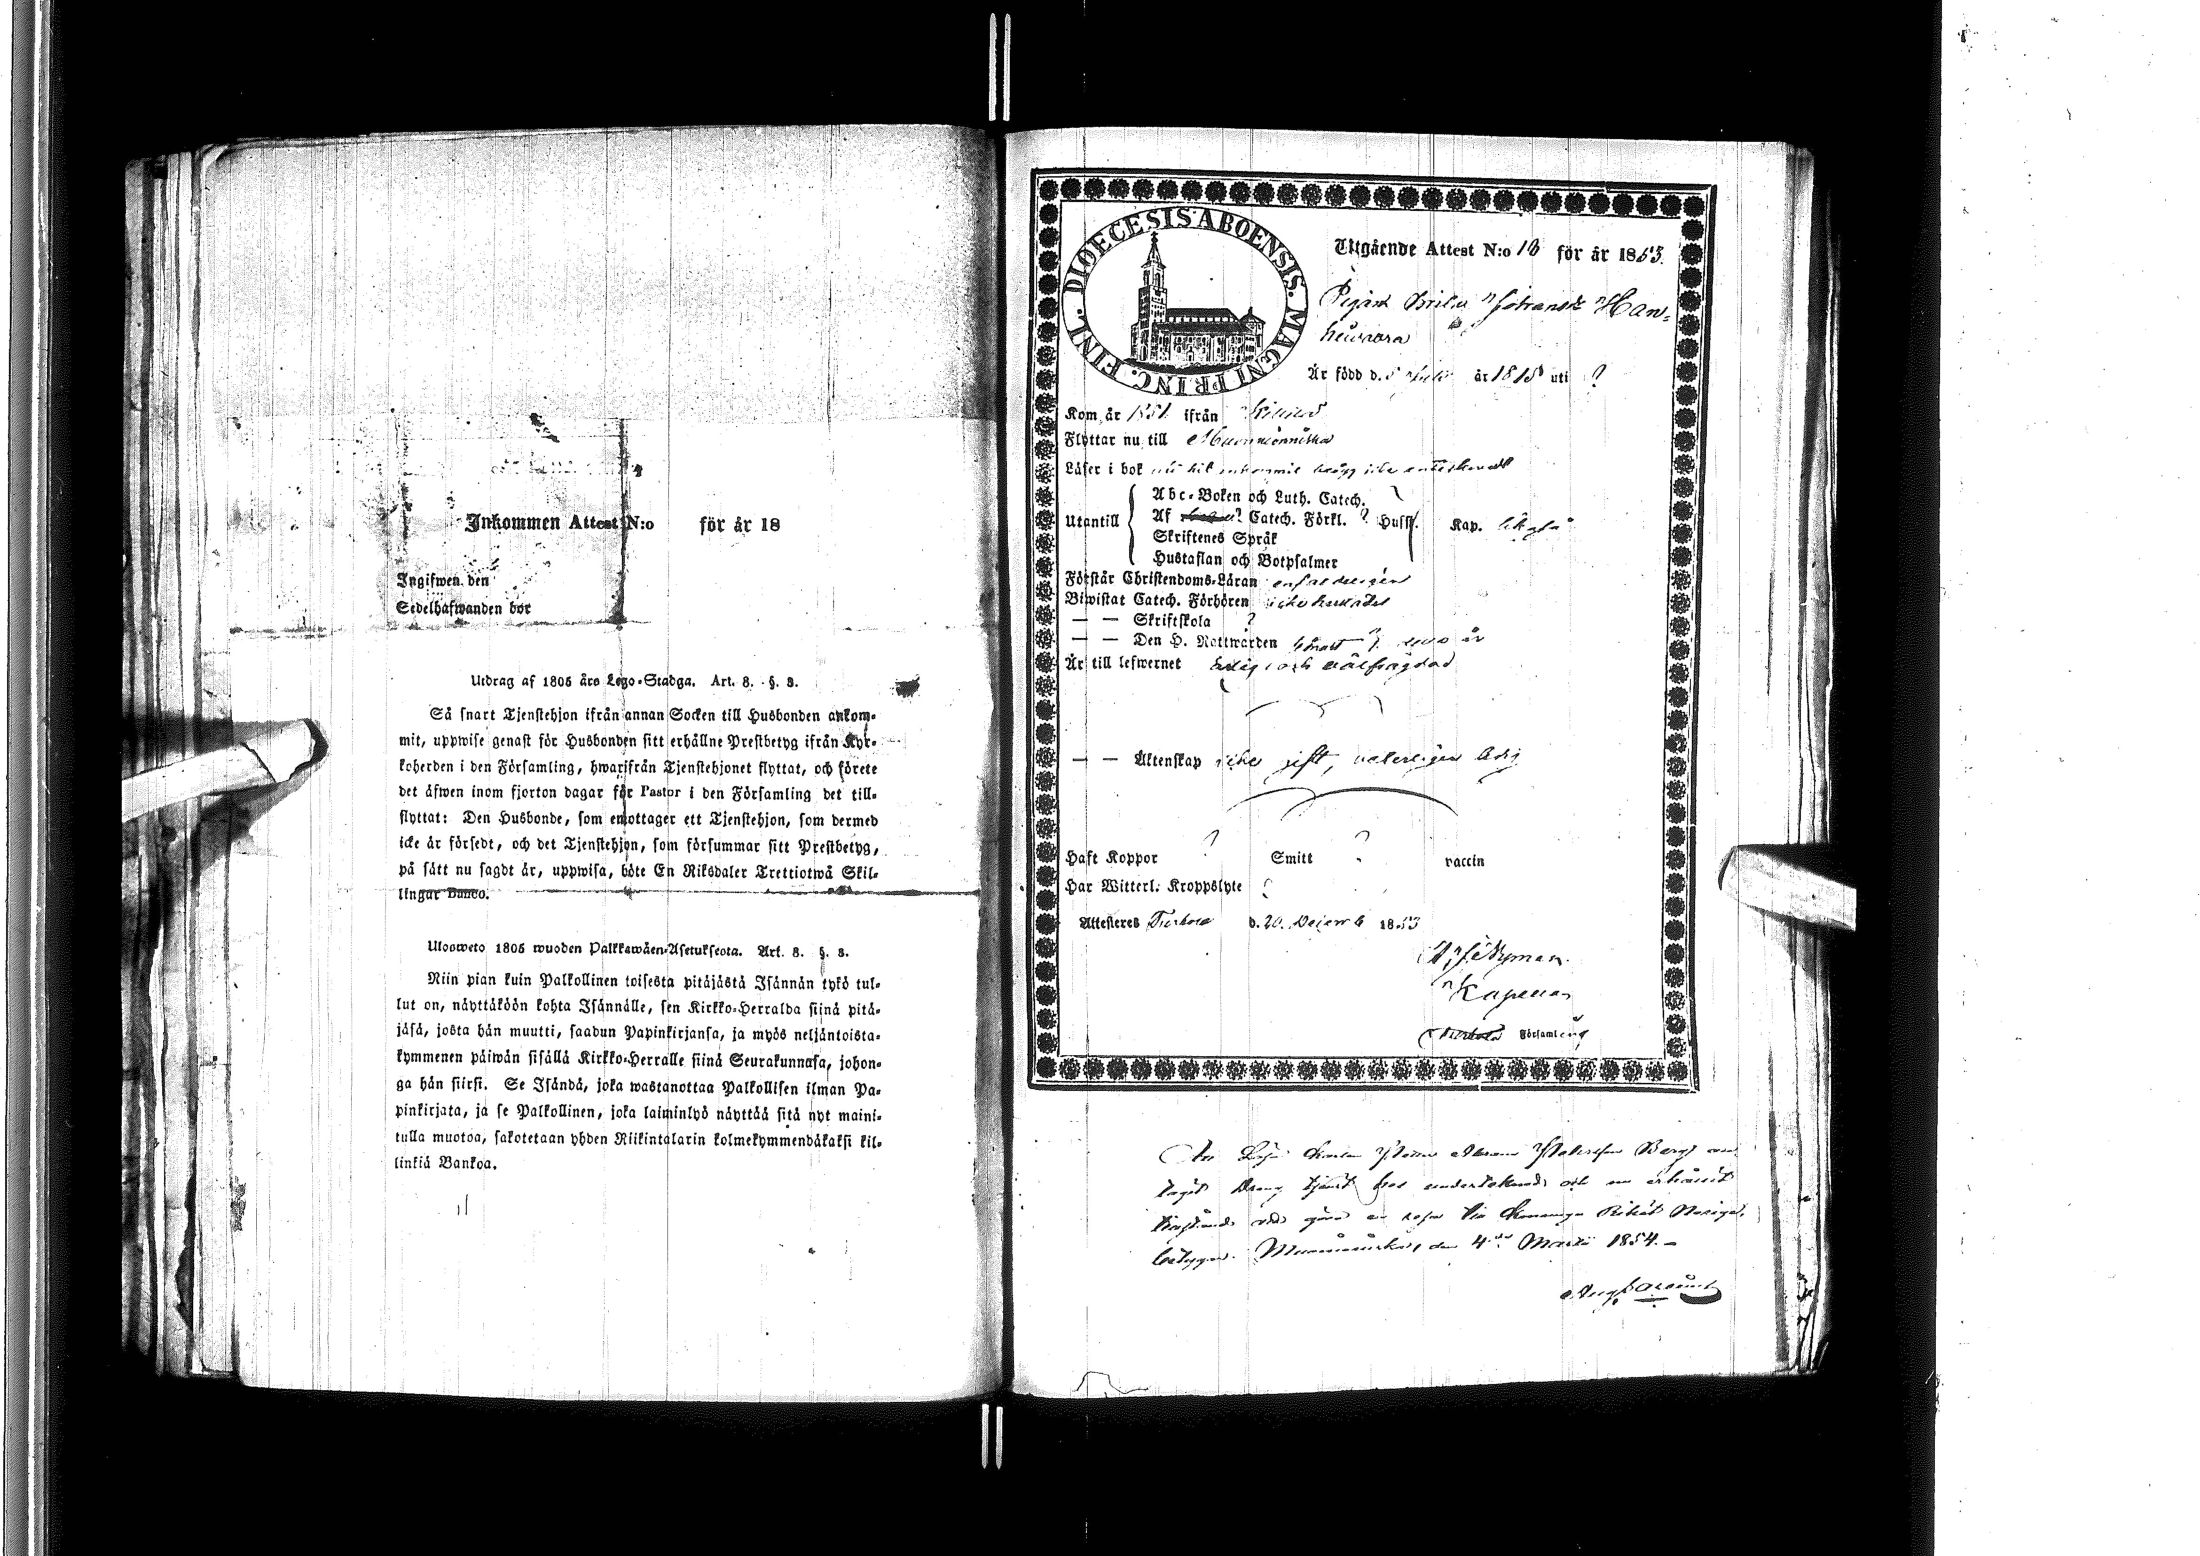 Inkommen Attest N:o för år 18
Ingifwen den
Sedelhafwanden bor
Utdrag af 1805 års Lego-Stadga. Art. 8. §. 3.
Så snart Tjenstehjon ifrån annan Socken till Husbonden ankom-
mit, uppwise genast för Husbonden sitt erhållne Prestbetyg ifrån Kyr-
koherden i den Församling, hwarifrån Tjenstehjonet flyttat, och förete
det äfwen inom fjorton dagar för Pastor i den Församling det till-
flyttat: Den Husbonde, som emottager ett Tjenstehjon, som dermed
icke är försedt, och det Tjenstehjon, som försummar sitt Prestbetyg,
på sätt nu sagdt är, uppwisa, böte En Riksdaler Trettiotwå Skil-
lingar Banco.
Ulosweto 1805 wuoden Palkkawäen-Asetuksesta. Art. 8. §. 3.
Niin pian kuin Palkollinen toisesta pitäjästä Isännän tykö tul-
lut on, näyttäköön kohta Isännälle, sen Kirkko-Herralda siinä pitä-
jäsä, josta hän muutti, saadun Papinkirjansa, ja myös neljäntoista-
kymmenen päiwän sisällä Kirkko-Herralle siinä Seurakunnasa, johon-
ga hän siirsi. Se Isändä, joka wastanottaa Palkollisen ilman Pa-
pinkirjata, ja se Palkollinen, joka laiminlyö näyttää sitä nyt maini-
tulla muotoa, sakotetaan yhden Riikintalarin kolmekymmendäkaksi kil-
linkiä Bankoa.
DIOECESIS ABOENSIS. MAGNI PRINC. FINL.
Utgående Attest N:o 10 för år 1853.
Pigan Brita Han-
Är född d. 5 år 1818 uti ?
Kom år 1851 ifrån
Flyttar nu till Muonioniska
Läser i bok icke
Abc-Boken och Luth. Catech.
Utantill Af ? Catech. Förkl. ? Hufst. Kap. likaså
Skriftenes Språk
Hustaflan och Botpsalmer
Förstår Christendoms-Läran enfaldeligen
Biwistat Catech. Förhören icke
— — Skriftskola ?
— — Den H. Nattwarden ? år
Är till lefwernet ärlig och välfrägdad
— — Äktenskap icke gift, veterligen ledig
Haft Koppor ? Smitt ? vaccin
Har Witterl. Kroppslyte ?
Attesteras Turtola d. 20. Decemb 1853
Nyman.
Kapellan
Turtola Församling
taget Dräng tjenst hos undertecknad och
göra en resa
betygar. Muonioniska, den 4 Martii 1854.-